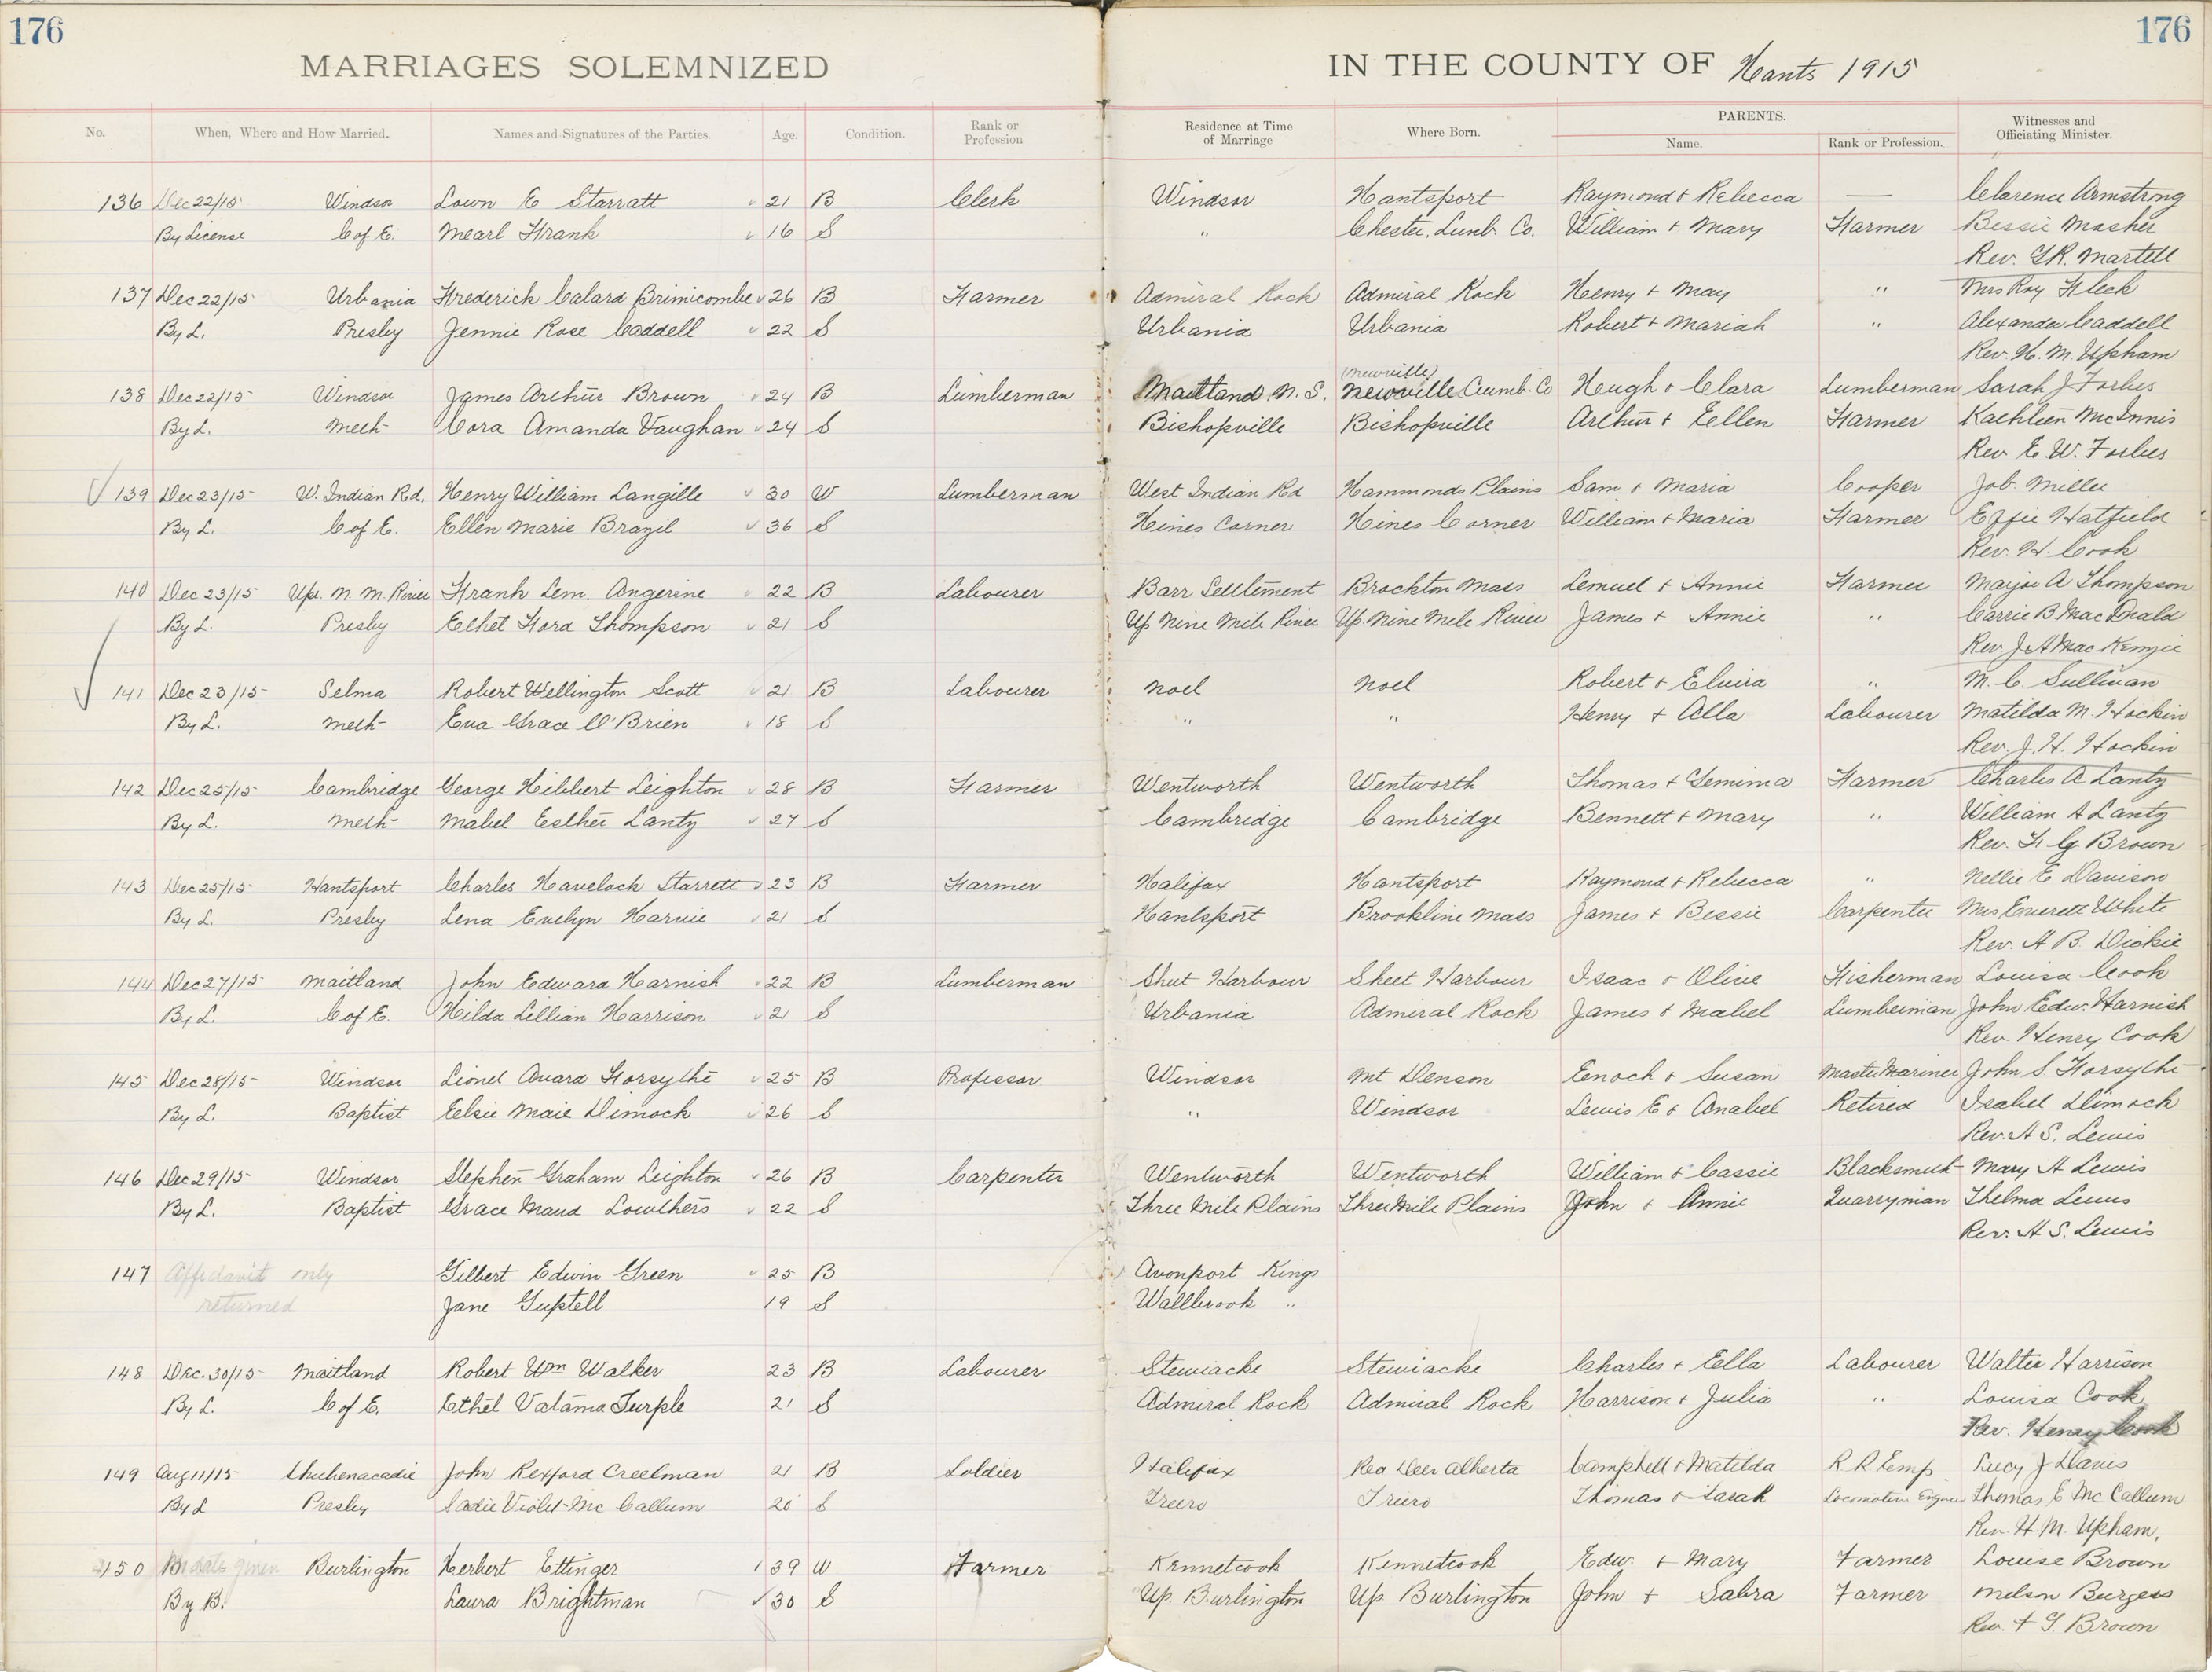 176
176
MARRIAGES SOLEMNIZED IN THE COUNTY OF Hants 1915
No. When, Where and How Married. Names and Signatures of the Parties. Age. Condition. Rank or Profession Residence at Time of Marriage Where Born. PARENTS. Name. Rank or Profession. Witnesses and Officiating Minister.
136 Dec 22/15 Windsor E Starratt 21 B Clerk Windsor Hantsport Raymond & Rebecca — Clarence Armstrong
By License C of E. Mearl Frank 16 S " Chester, Lunb. Co. William & Mary Farmer Bessie Mosher
Rev. G.R. Martell
137 Dec 22/15 Urbania Frederick Calard Brimicombe 26 B Farmer Admiral Rock Admiral Rock Henry & May " Mrs Roy Fleck
By L. Presby Jennie Rose Caddell 22 S Urbania Urbania Robert & Mariah " Alexander Caddell
Rev. H. M. Upham
(Newville)
138 Dec 22/15 Windsor James Arthur Brown 24 B Lumberman Maitland N. S. Newville Cumb. Co Hugh & Clara Lumberman Sarah J Forbes
By L. Meth Cora Amanda Vaughan 24 S Bishopville Bishopville Arthur & Ellen Farmer Kathleen McInnis
Rev E. W. Forbes
139 Dec 23/15 W. Indian Rd. Henry William Langille 30 W Lumberman West Indian Rd Hammonds Plains Sam & Maria Cooper Job. Miller
By L. C of E. Ellen Marie Brazil 36 S Hines Corner Hines Corner William & Maria Farmer Effie Hatfield
Rev. H. Cook
140 Dec 23/15 Upr. N. M. River Frank Lem. Angerine 22 B Labourer Barr Settlement Brockton Mass Lemuel & Annie Farmer A Thompson
By L. Presby Ethel Ford Thompson 21 S Up Nine Mile River Up. Nine Mile River James & Annie " Carrie B. MacDonald
Rev J A MacKenzie
141 Dec 23/15 Selma Robert Wellington Scott 21 B Labourer Noel Noel Robert & Elvira " M. C. Sullivan
By L. Meth Eva Grace O'Brien 18 S " " Henry & Alla Labourer Matilda M. Hockin
Rev. J. H. Hockin
142 Dec 25/15 Cambridge George Hibbert Leighton 28 B Farmer Wentworth Wentworth Thomas & Jemima Farmer Charles A Lantz
By L. Meth Mabel Esther Lantz 27 S Cambridge Cambridge Bennett & Mary " William A Lantz
Rev. F. G Brown
143 Dec 25/15 Hantsport Charles Havelock Starrett 23 B Farmer Halifax Hantsport Raymond & Rebecca " Nellie E Davison
By L. Presby Lena Evelyn Harvie 21 S Hantsport Brookline Mass James & Bessie Carpenter Mrs Everett White
Rev. A B. Dickie
144 Dec 27/15 Maitland John Edward Harnish 22 B Lumberman Sheet Harbour Sheet Harbour Isaac & Olive Fisherman Louisa Cook
By L. C of E. Hilda Lillian Harrison 21 S Urbania Admiral Rock James & Mabel Lumberman John Edw. Harnish
Rev. Henry Cook
145 Dec 28/15 Windsor Lionel Avard Forsythe 25 B Professor Windsor Mt Denson Enoch & Susan Master Mariner John S. Forsythe
By L. Baptist Elsie Marie Dimock 26 S " Windsor Lewis E & Anabel Retired Isabel Dimock
Rev. A S. Lewis
146 Dec 29/15 Windsor Stephen Graham Leighton 26 B Carpenter Wentworth Wentworth William & Cassie Blacksmith Mary A Lewis
By L. Baptist Grace Maud Lowthers 22 S Three Mile Plains Three Mile Plains John & Annie Quarryman Thelma Lewis
Rev. A S. Lewis
147 Affidavit only Gilbert Edwin Green 25 B Avonport Kings
returned Jane Guptell 19 S Wallbrook "
148 Dec. 30/15 Maitland Robert Wm Walker 23 B Labourer Stewiacke Stewiacke Charles & Ella Labourer Walter Harrison
By L. C of E. Ethel Turple 21 S Admiral Rock Admiral Rock Harrison & Julia " Louisa Cook
Rev. Henry Cook
149 Aug 11/15 Shubenacadie John Rexford Creelman 21 B Soldier Halifax Red Deer Alberta Campbell & Matilda R. R. Emp. Lucy J Davis
By L Presby Sadie Violet McCallum 20 S Truro Truro Thomas & Sarah Locomotive Engineer Thomas E McCallum
Rev. H. M. Upham.
150 No date given Burlington Herbert Ettinger 39 W Farmer Kennetcook Kennetcook Edw. & Mary Farmer Louise Brown
By B. Laura Brightman 30 S Up. Burlington Up Burlington John & Sabra Farmer Melson Burgess
Rev. F G. Brown